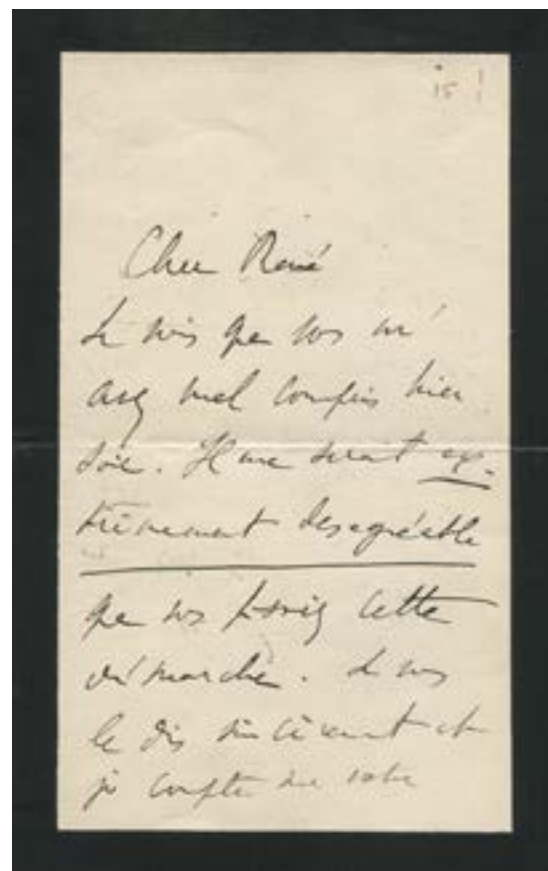 15 !
Cher René
Je vois que vs m'
avez mal compris hier
soir. Il me serait ex-
trêmement desagréable
que vs fassiez cette
démarche. Je vs
le dis sincèrement et
je compte sur votre